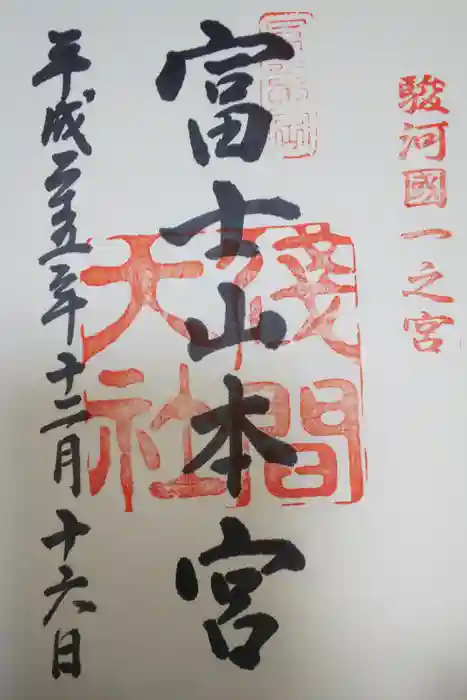 駿河國一之宮
富士山本宮
淺間
大社
平成二五年十二月十六日